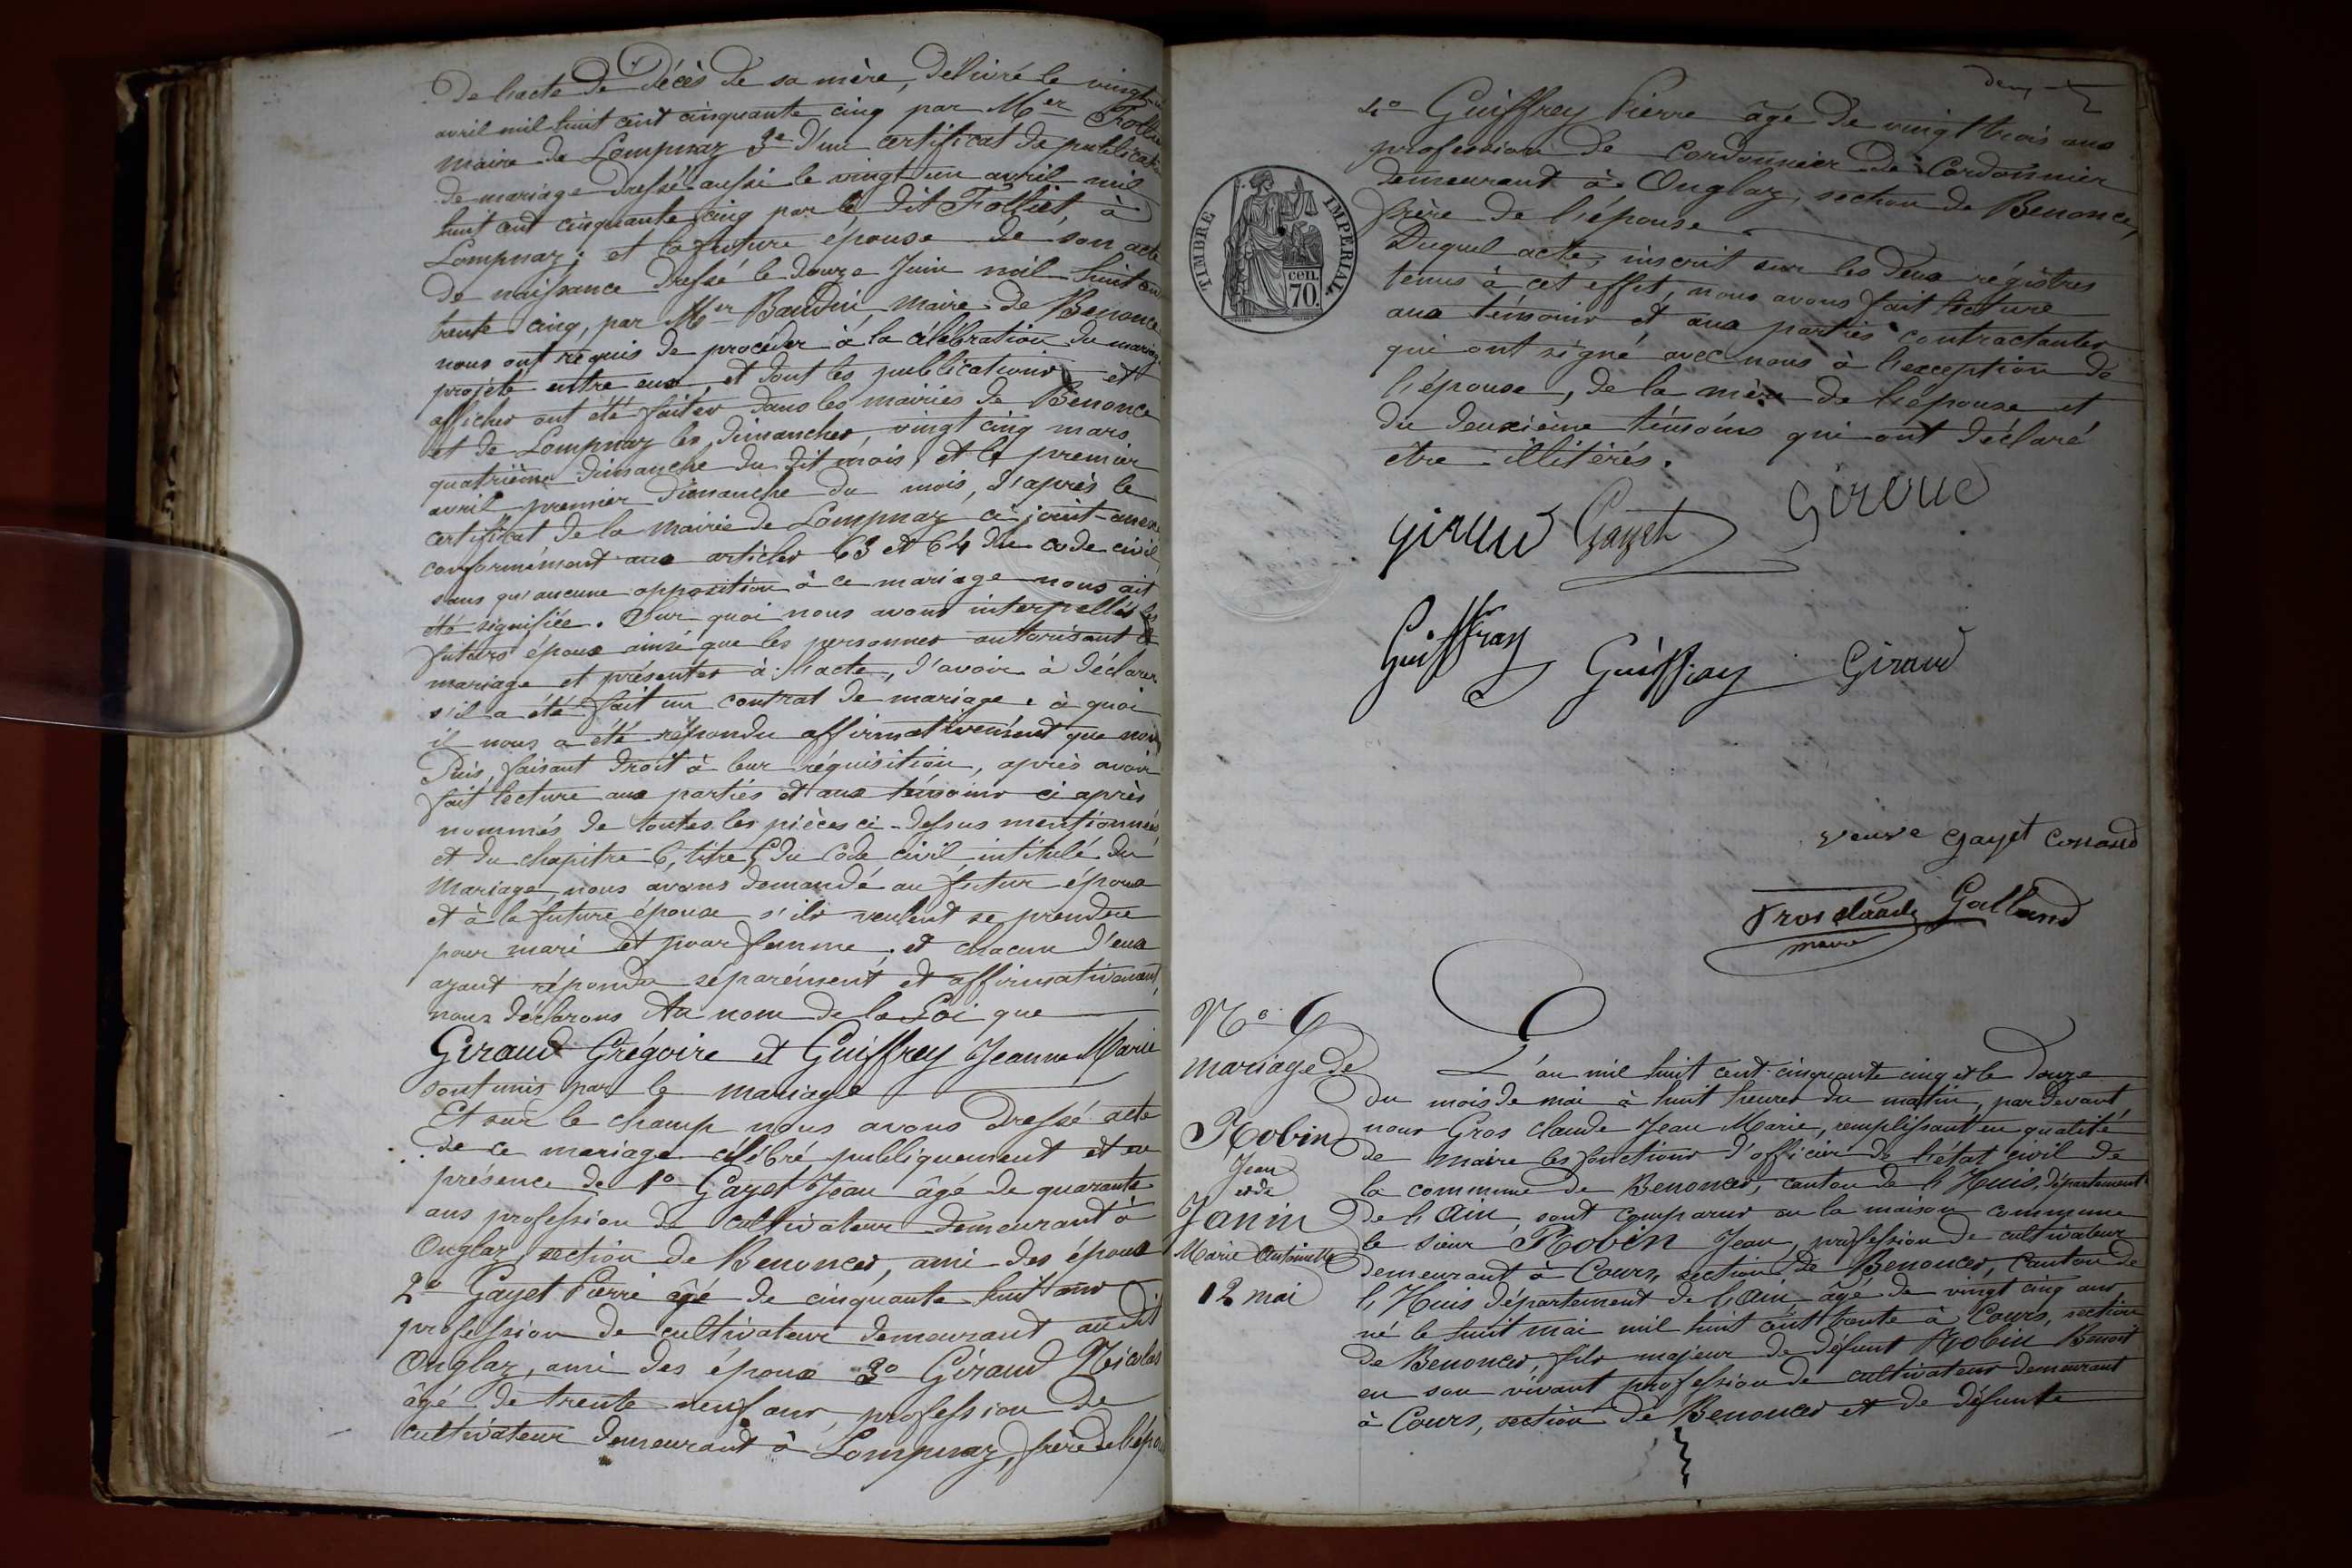 De l'acte de Décès de sa mère, délivré le vingt
avril mil huit cent cinquante cinq par Mer Folliet
maire de Lompnaz 3e D'un certificat de publication
de mariage dressé aussi le vingt un avril mil
huit cent cinquante cinq par le dit Folliet, à
Lompnaz; et la future épouse de son acte
de naissance dressé le douze Juin mil huit cent
trente cinq, par Mer Baudin, maire de Benonce
nous ont réquis de procéder à la célébration du mariage
projété entre eux, et dont les publications et
affiches ont été faites dans les mairies de Benonce
et de Lompnaz les dimanches, vingt cinq mars,
quatrième dimanche du dit mois, et le premier
avril premier dimanche du mois, d'après le
certificat de la mairie de Lompnaz ci joint
conformément aux articles 63 et 64 du code civil,
sans qu'aucune opposition à ce mariage nous ait
été signifiée. Sur quoi nous avons interpellés les
futurs époux ainsi que les personnes autorisant le
mariage et présentes à l'acte, d'avoir à déclarer
s'il a été fait un contrat de mariage à quoi
il nous a été répondu affirmativement que non
Puis, faisant droit à leur réquisition, après avoir
fait lecture aux parties et aux témoins ci après
nommés de toutes les pièces ci-dessus mentionnées,
et du chapitre 6, titre 5 du code civil intitulé du
Mariage, nous avons demandé au futur époux
et à la future épouse s'ils veulent se prendre
pour mari et pour femme, et chacun d'eux
ayant répondu séparément et affirmativement,
nous déclarons Au nom de la Loi que
Giraud Grégoire et Guiffrey Jeanne Marie
sont unis par le mariage
Et sur le champ nous avons dressé acte
de ce mariage célébré publiquement et en
présence de 1o Gayet Jean âgé de quarante
ans profession de cultivateur demeurant à
Onglaz, section de Benonces, ami des époux
2o Gayet Pierre âgé de cinquante huit ans
profession de cultivateur demeurant au dit
Onglaz, ami des époux 3o Giraud Nicolas
âgé de trente neuf ans, profession de
cultivateur demeurant à Lompnaz, frère de l'époux
4o Guiffrey Pierre âgé de vingt trois ans
profession de cordonnier de Cordonnier
demeurant à Onglaz, section de Benonce,
frère de l'épouse
Duquel acte, inscrit sur les deux régistres
tenus à cet effet, nous avons fait lecture
aux témoins et aux parties contractantes
qui ont signé avec nous à l'exception de
l'épouse, de la mère de l'épouse et
du deuxième témoins qui ont déclaré
être illitérés.
TIMBRE IMPERIAL
cen.
70.
giraud Gayet Giroud
Guiffray Guiffray Giraud
veuve gayet conand
Gros claude Galland
maire
No 6
mariage de
Robin
Jean
et de
Janin
Marie Antoinette
12 mai
L'an mil huit cent cinquante cinq et le douze
du mois de mai à huit heures du matin, pardevant
nous Gros claude Jean Marie, remplissant en qualité
de maire les fonctions d'officier de l'état civil de
la commune de Benonces, canton de l'Huis, département
de l'Ain, sont comparus en la maison commune
le sieur Robin Jean, profession de cultivateur
demeurant à Cours, section de Benonces, Canton de
l'Huis département de l'Ain, âgé de vingt cinq ans
né le huit mai mil huit cent trente à Cours, section
de Benonces, fils majeur de défunt Robin Benoit
en son vivant profession de cultivateur demeurant
à Cours, section de Benonces et de défunte